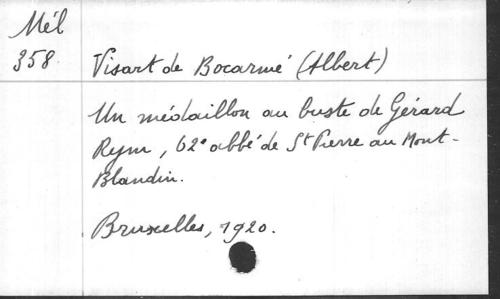 Mél
358.
Visart de Bocarmé (Albert)
Un médaillon au buste de Gérard
Rym, 62e abbé de St Pierre au Mont-
Blandin.
Bruxelles, 1920.